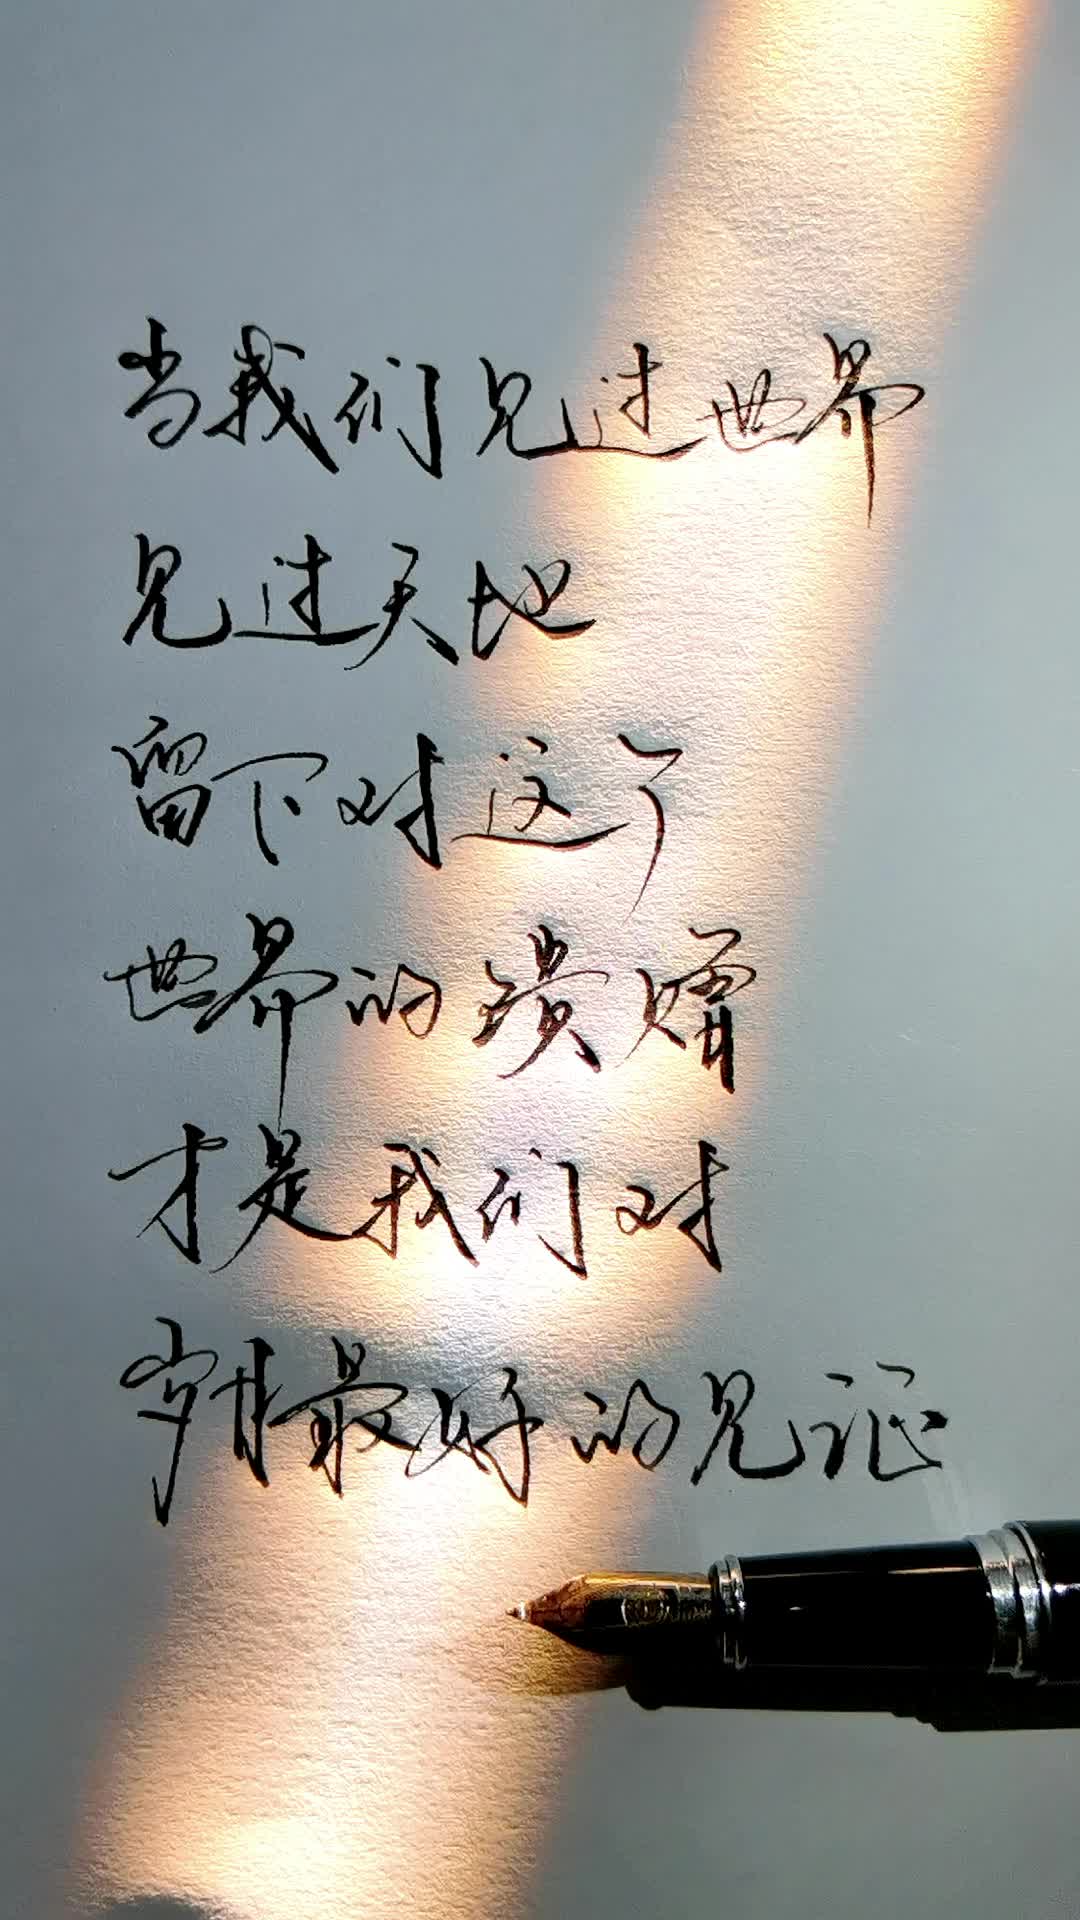 当我们见过世界
见过天地
留下对这个
世界的馈赠
才是我们对
岁月最好的见证